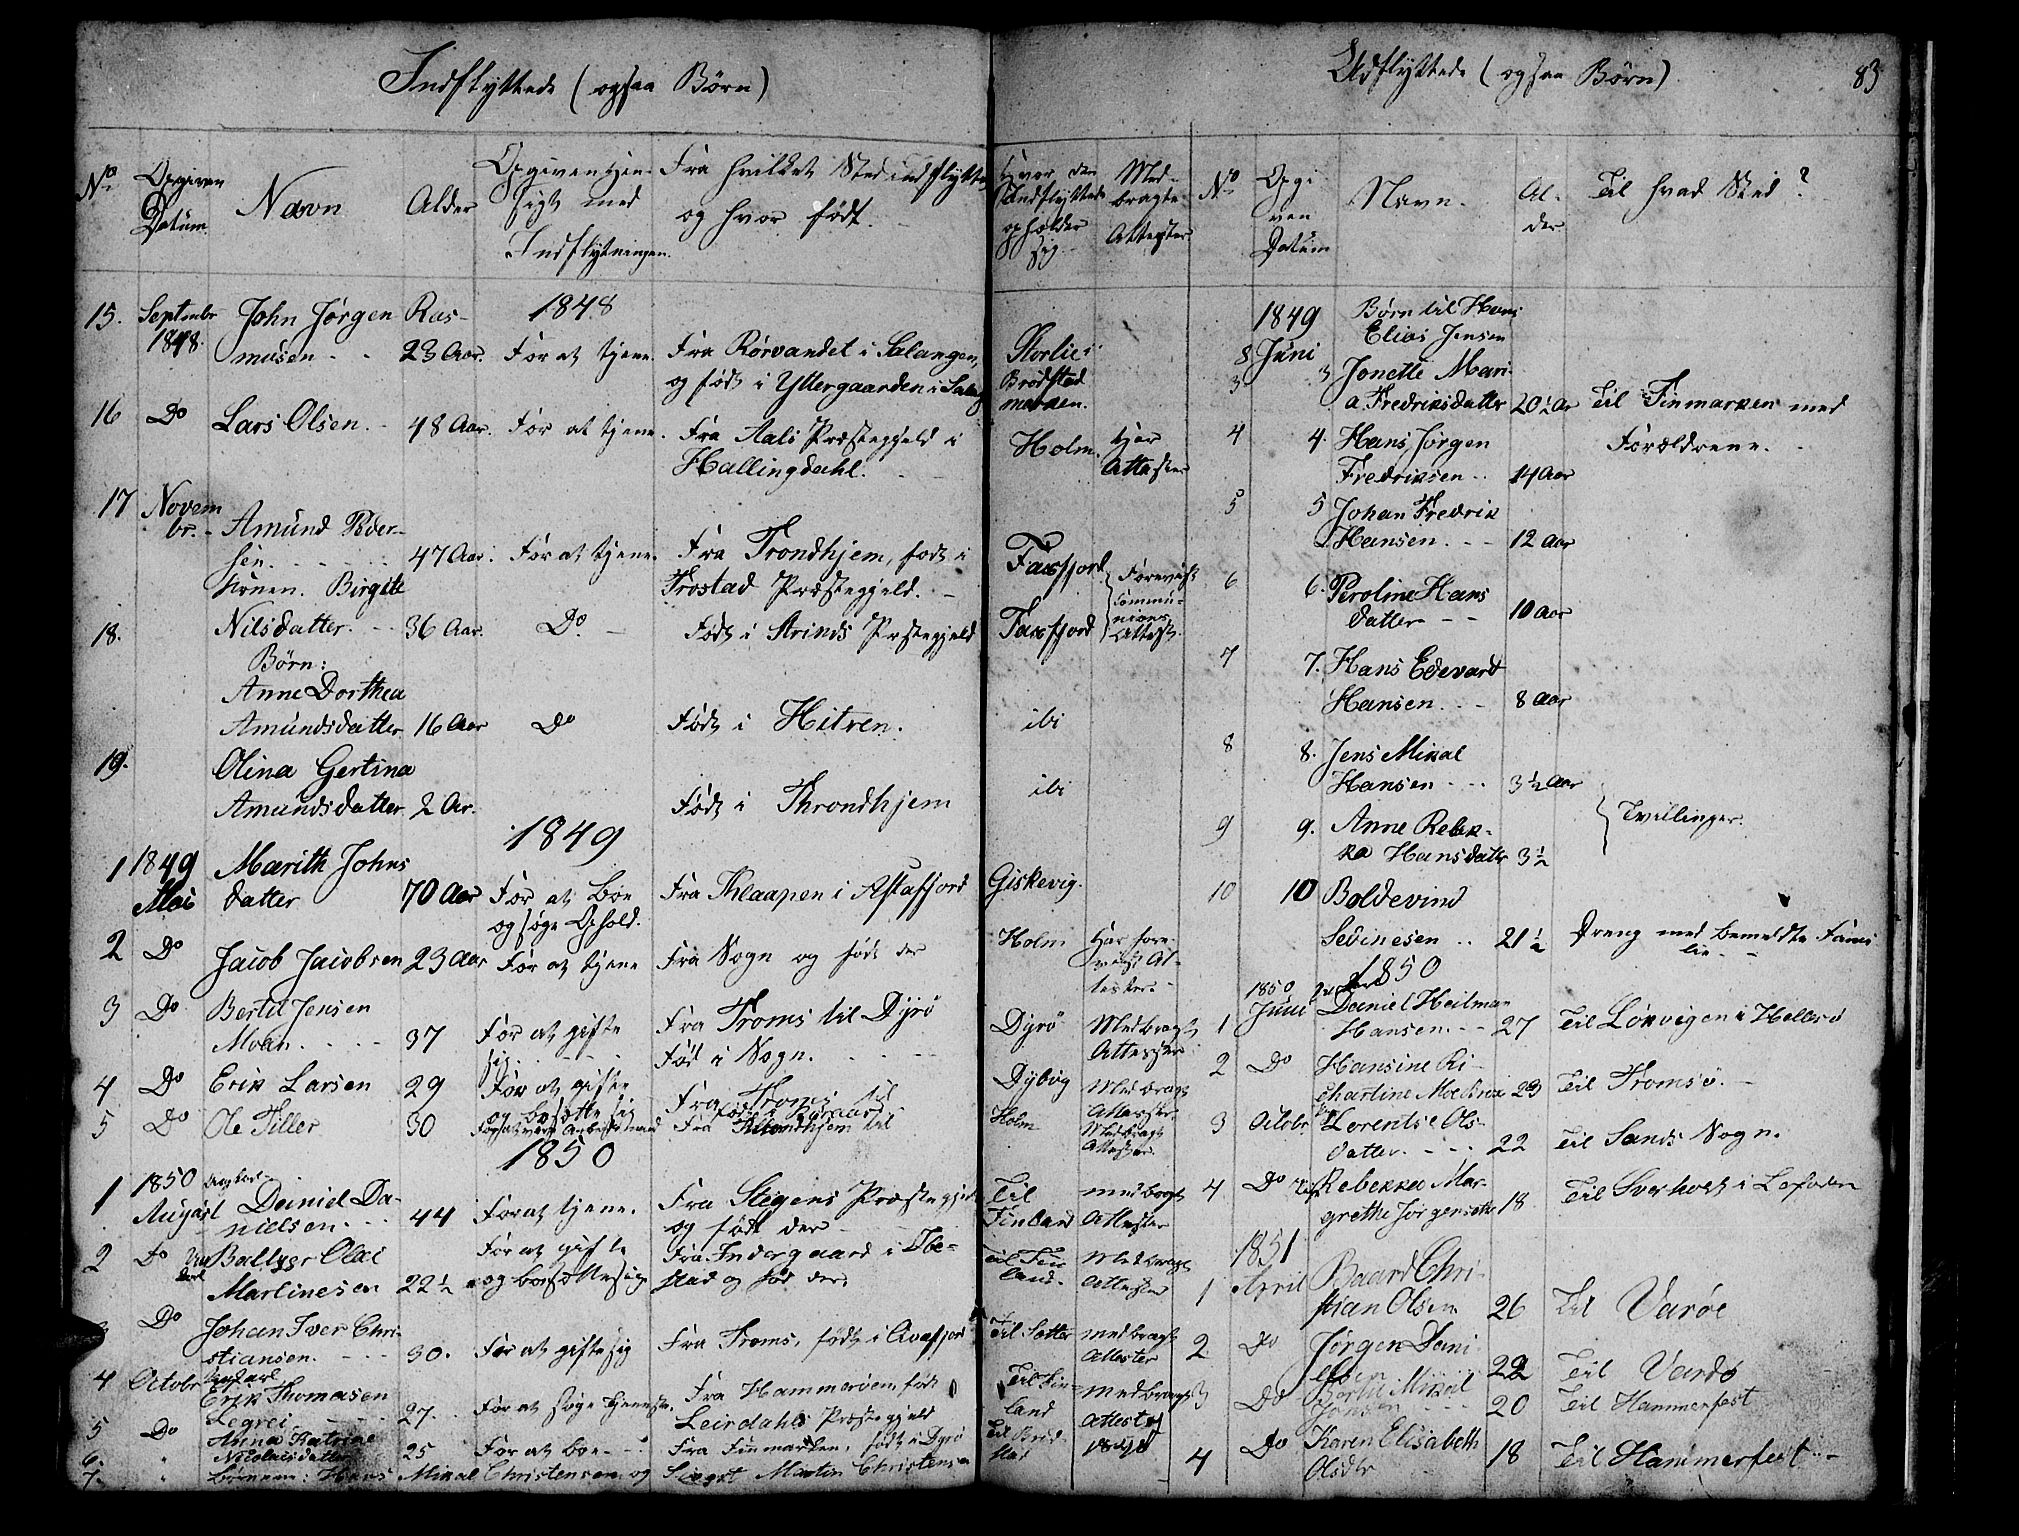 Indflyttede (ogsaa Børn)
No
Opgiven Datum.
Navn
Alder
Opgiven Hensigt med Indflytningen.
Fra hvilket Sted indflyttet og hvor født.
Hvor den Indflyttede opholder sig.
Medbragte Attester
1848
15. Septembr 1848. John Jørgen Rasmusen 23 Aar. For at tjene. Fra Rørvandet i Salangen, og født i Yttergaarden i Salang Storlie i Brødstadmarken.
16 Do Lars Olsen. 48 Aar. For at tjene. Fra Aals Præstegjeld i Hallingdahl. Holm. Har Attester
17 Novembr. Amund Pedersen. 47 Aar. For at tjene. Fra Trondhjem, født i Frostad Præstegjeld. Faxfjord Foreviist Communions Attest.
Konen. Birgitte
18. Nilsdatter. 36 Aar. Do Født i Strinds Præstegjeld Faxfjord
Børn:
Anne Dorthea
Amundsdatter 16 Aar Do Født i Hitren. ibi
19. Olina Gertina
Amundsdatter. 2 Ar. Født i Throndhjem ibi
1849
1 1849 Mai Marith Johnsdatter 70 Aar For at boe og søge Ophold. Fra Klaapen i Astafjord Giskevig.
2 Do Jacob Jacobsen 23 Aar For at tjene Fra Sogn og født der Holm Har foreviist Attester.
3 Do Bertel Jensen Moan. 37 For at gifte sig. Fra Troms til Dyrø Fød i Sogn. Dyrø Medbragt Attester
4 Do Erik Larsen 29 For at gifte og bosætte sig Fra Troms til Dybvig Medbragt Attester.
5 Do Ole Tiller 30 Fra Throndhjem til Holm Medbragt Attester.
1850
1 1850 August Daniel Danielsen. 44 For at tjene. Fra Stegens Præstegjeld og født der Til Finland medbragt Attester
2 Do Baltzer Olai Martinesen 22½ For at gifte og bosætte sig Fra Indergaard i Ibestad og fød der. Til Finland. Medbragt Attester
Do Johan Iver Christiansen. 30. For at gifte sig Fra Troms, født i Qvæfjord Til Sætter medbragt Attester
4 Octobr Erik Thomasen Legrei 27. For at søge tjeneste. Fra Hammerøen, født Leirdahls Præstegjeld Til Finland medbragt Attester
5 Do Anna Katrine
6. Nicolaisdatter 25 For at boe Fra Finmarken, født i Dyrø
7. Børnene: Hans Mikal Christensen og Martin Christensen
Udflyttede (ogsaa Børn)
83
No
Opgiven Datum
Navn.
Alder
Til hvad Sted?
1849 Børn til Hans Elias Jensen
8 Juni
3 3 Jonette Maria Fredriksdatter 20½ Ar Til Finmarken med Forældrene.
4 4. Hans Jørgen Fredriksen 14 Aar
5 5 Johan Fredrik Hansen. 12 Aar
6 6. Peroline Hansdatter 10 Aar
7 7. Hans Edevard Hansen. 8 Aar
8 8. Jens Mikal Hansen 3½ Aar
Tvillinger.
9 9. Anne Rebekka Hansdatter 3½
10 10 Boldevind Sevinesen 21½ Dreng med bemeldte Familie
1850
1850
1 Juni Daniel Heilman Hansen. 27 Til Løkvigen i Hellesø
2 Do Hansine Richartine 23 Til Tromsø.
3 Octobr Lorentse Olsdatter. 22 Til Sands Sogn.
4 Do Rebekka Margrethe Jørgensdtr 18 Til Sverholt i Lofoden
1851
1 April Baard Christian Olsen 26 Til Varøe
2. Do Jørgen Danielsen 22 Til Vardø
3 Do Bertel Mikal Jensen 20 Til Hammerfest
4 Do Karen Elisabeth Olsdtr 18 Til Hammerfest